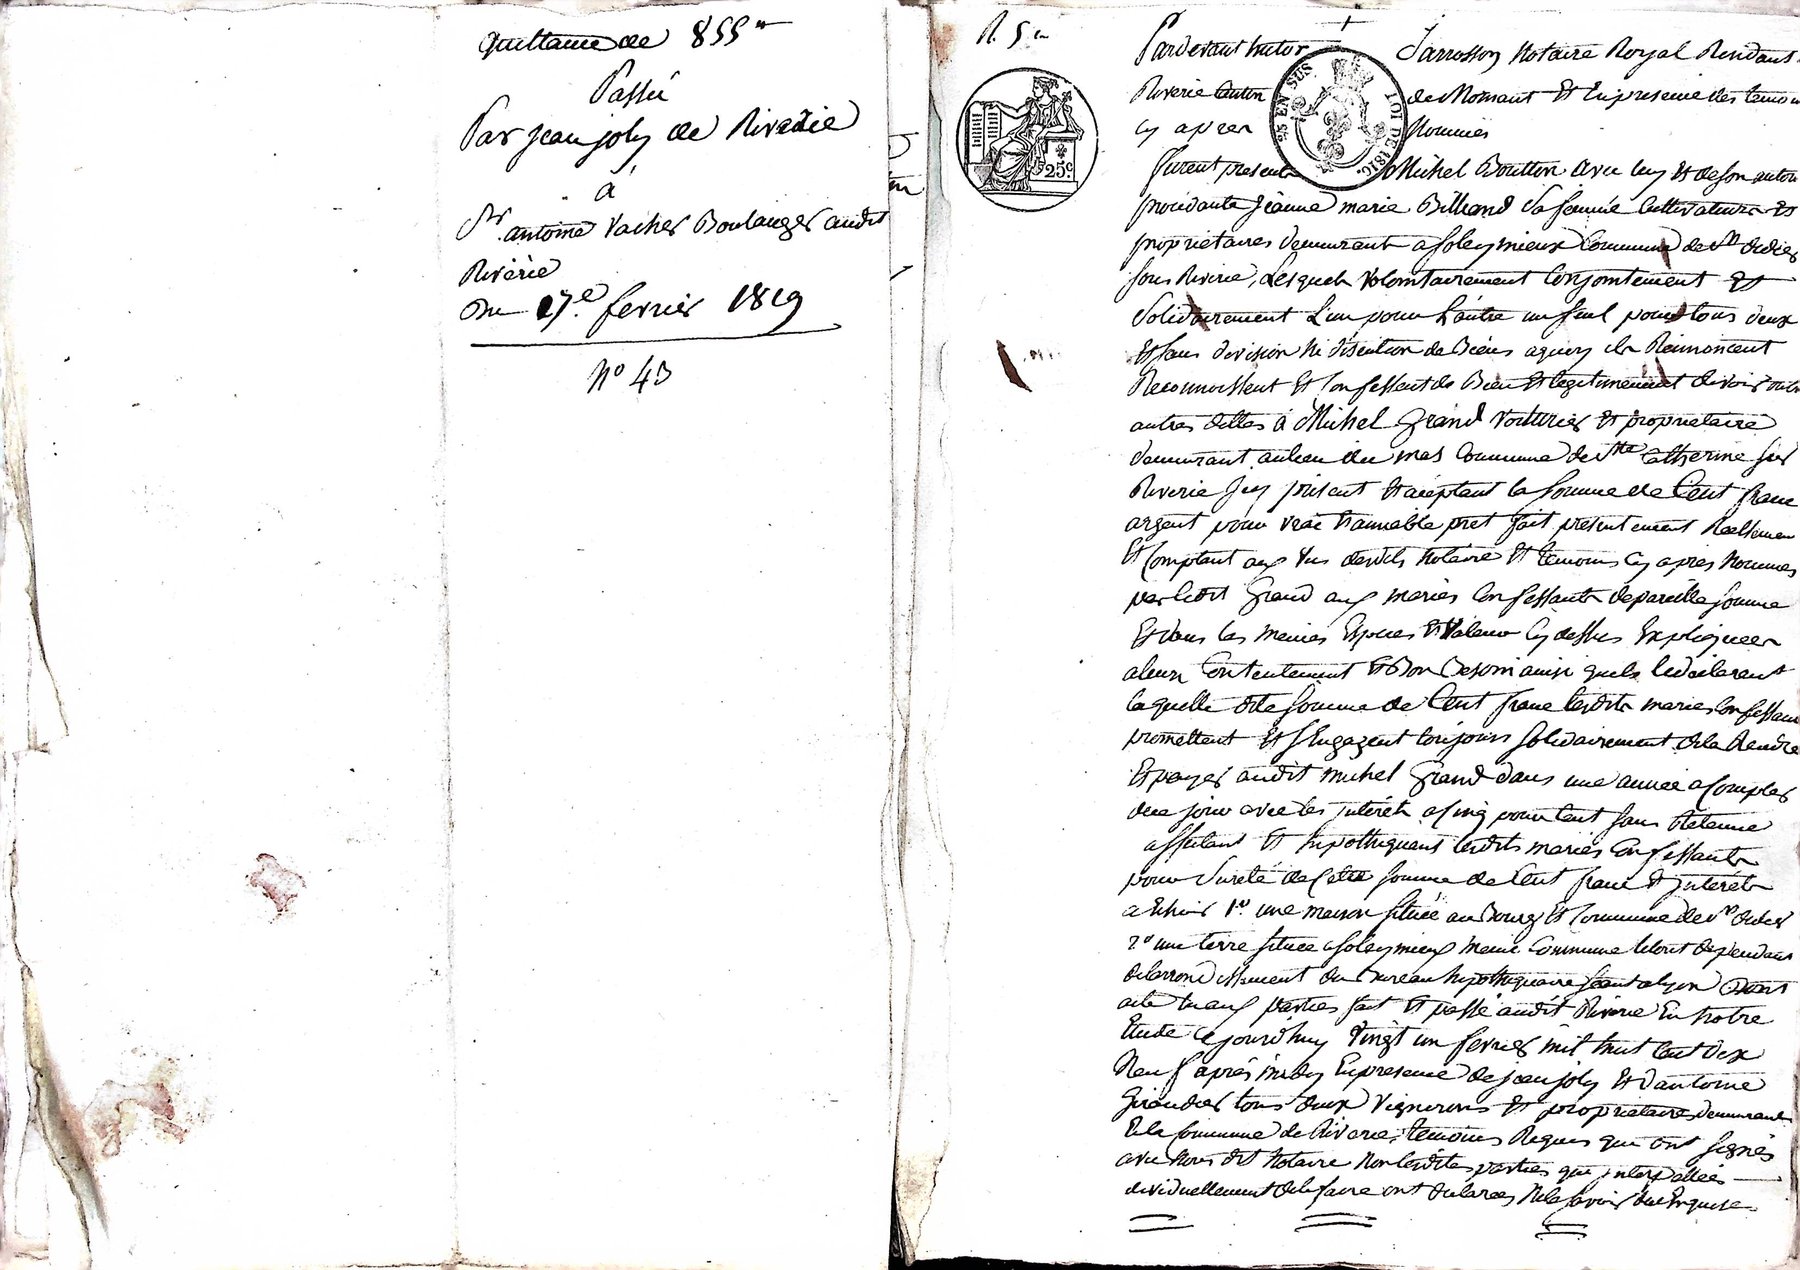 quittance de 855ᶠ
Passé
Par jean joly de Riverie
à
Sʳ. antoine vacher Boulanger audit
Riverie
Du 17.ᵉ fevrier 1819
Nº 43
Pardevant
Jarrosson Notaire Royal Residant
Riverie Canton
de Mornant Et En presence des temoins
Cy apres
Nommés
25 EN SUS
LOI DE 1816.
25ᶜ
furent presents
Michel Boutton avec luy Et de son autori
procedante jeanne marie Billiand sa femme Cultivateurs Et
proprietaires demeurants a soleymieux Commune de Sᵗ didier
sous Riverie, Lesquels volontairement Conjointement Et
solidairement L'un pour L'autre un seul pour tous deux
Et sans division Ni discution de Biens a quoy ils Renoncent
Reconnoissent Et Confessent de Bien Et legitimement devoir
autres dettes à Michel Grand voiturier Et proprietaire
demeurant au lieu du mas Commune de Sᵗᵉ Catherine sur
Riverie Jcy présent Et acceptant la somme de Cent franc
argent pour vrai Et amiable pret fait presentement Reellemen
Et Comptant aux vus desdits Notaire Et temoins Cy apres Nommes
par ledit Grand aux mariés Confessants de pareille somme
Et dans les memes Especes Et Valeur Cy dessus Expliquées
a leur Contentement Et Bon Besoin ainsi quils le déclarent
laquelle dite somme de Cent franc lesdits mariés Confessant
promettent Et s'Engagent toujours solidairement de la Rendre
Et payer audit michel Grand dans une année a Compter
de ce jour avec les jnterets a Cinq pour Cent sans Retenue
affectant Et hypothequant lesdits mariés Confessants
pour sureté de Cette somme de Cent franc Et jnterets
a Echoir 1º. une maison située au Bourg Et Commune de Sᵗ didier
2º une terre située a soleymieux meme Commune le tout dependant
de l'arrondissement du Bureau hypothequaire séant a lyon Dont
acte aux parties fait Et passé audit Riverie En Notre
Etude Ce jourd'huy Vingt un fevrier mil huit Cent dix
Neuf après midy En presence de jean joly Et d'antoine
Giraudier tous deux Vignerons Et proprietaires demeurants
En la Commune de Riverie, temoins Requis qui ont signés
avec Nous dit Notaire Non lesdites parties qui jnterpellées
dividuellement de le faire ont declarées Ne le savoir de ce Enquise